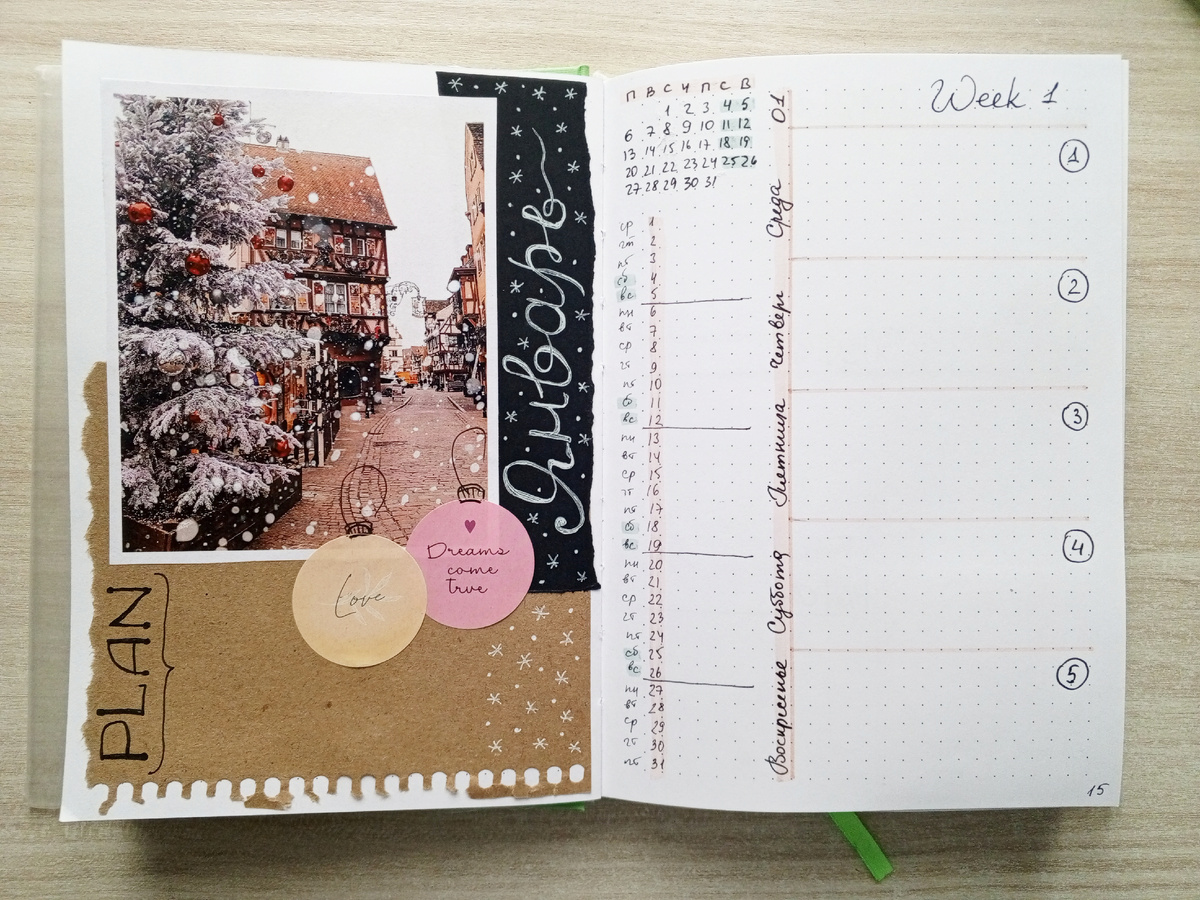 Январь
Love
Dreams
come
true
PLAN
П В С Ч П С В
1 2 3 4 5
6 7 8 9 10 11 12
13 14 15 16 17 18 19
20 21 22 23 24 25 26
27 28 29 30 31
ср 1
чт 2
пт 3
сб 4
вс 5
пн 6
вт 7
ср 8
чт 9
пт 10
сб 11
вс 12
пн 13
вт 14
ср 15
чт 16
пт 17
сб 18
вс 19
пн 20
вт 21
ср 22
чт 23
пт 24
сб 25
вс 26
пн 27
вт 28
ср 29
чт 30
пт 31
Week 1
01
Среда
1
Четверг
2
Пятница
3
Суббота
4
Воскресенье
5
15